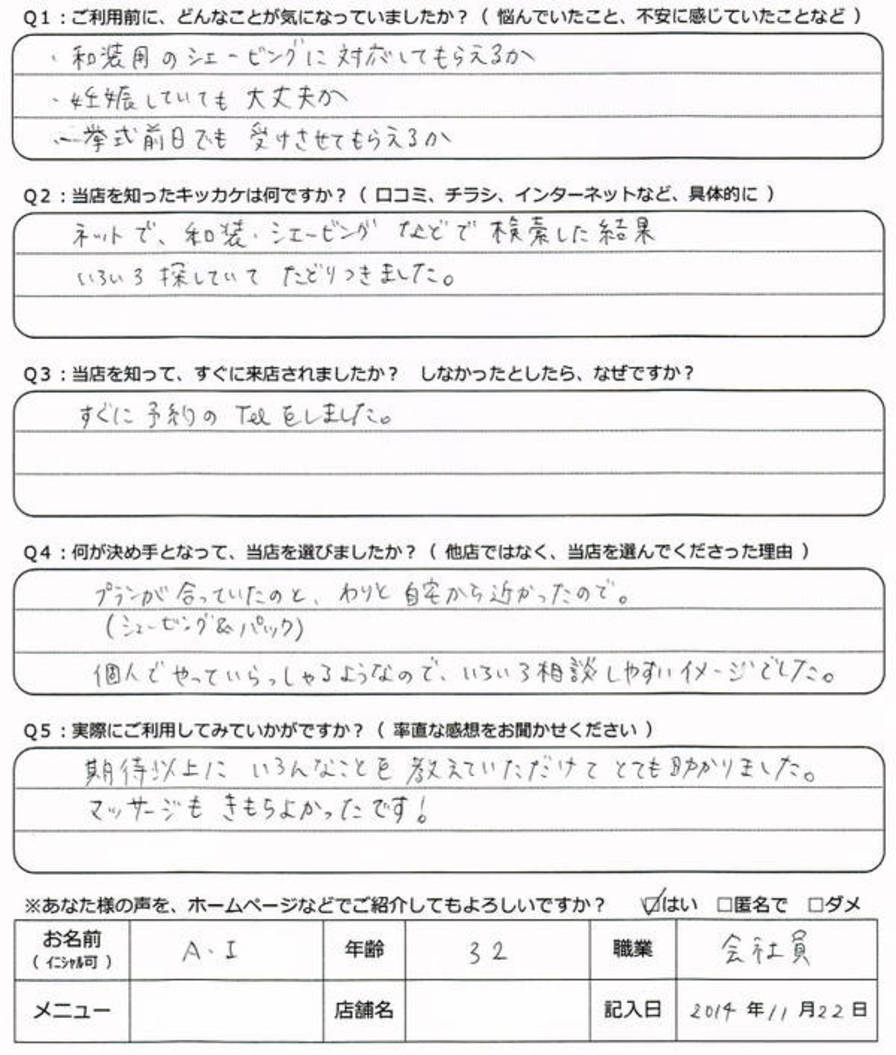 Q1：ご利用前に、どんなことが気になっていましたか？（ 悩んでいたこと、不安に感じていたことなど ）
・和装用のシェービングに対応してもらえるか
・妊娠していても大丈夫か
・挙式前日でも受けさせてもらえるか
Q2：当店を知ったキッカケは何ですか？（ 口コミ、チラシ、インターネットなど、具体的に ）
ネットで、和装・シェービングなどで検索した結果
いろいろ探していてたどりつきました。
Q3：当店を知って、すぐに来店されましたか？　しなかったとしたら、なぜですか？
すぐに予約のTelをしました。
Q4：何が決め手となって、当店を選びましたか？（ 他店ではなく、当店を選んでくださった理由 ）
プランが合っていたのと、わりと自宅から近かったので。
(シェービング&パック)
個人でやっていらっしゃるようなので、いろいろ相談しやすいイメージでした。
Q5：実際にご利用してみていかがですか？（ 率直な感想をお聞かせください ）
期待以上にいろんなことを教えていただけてとても助かりました。
マッサージもきもちよかったです！
※あなた様の声を、ホームページなどでご紹介してもよろしいですか？　☑はい　□匿名で　□ダメ
お名前 A・I 年齢 32 職業 会社員
（ イニシャル可 ）
メニュー 店舗名 記入日 2014年11月22日